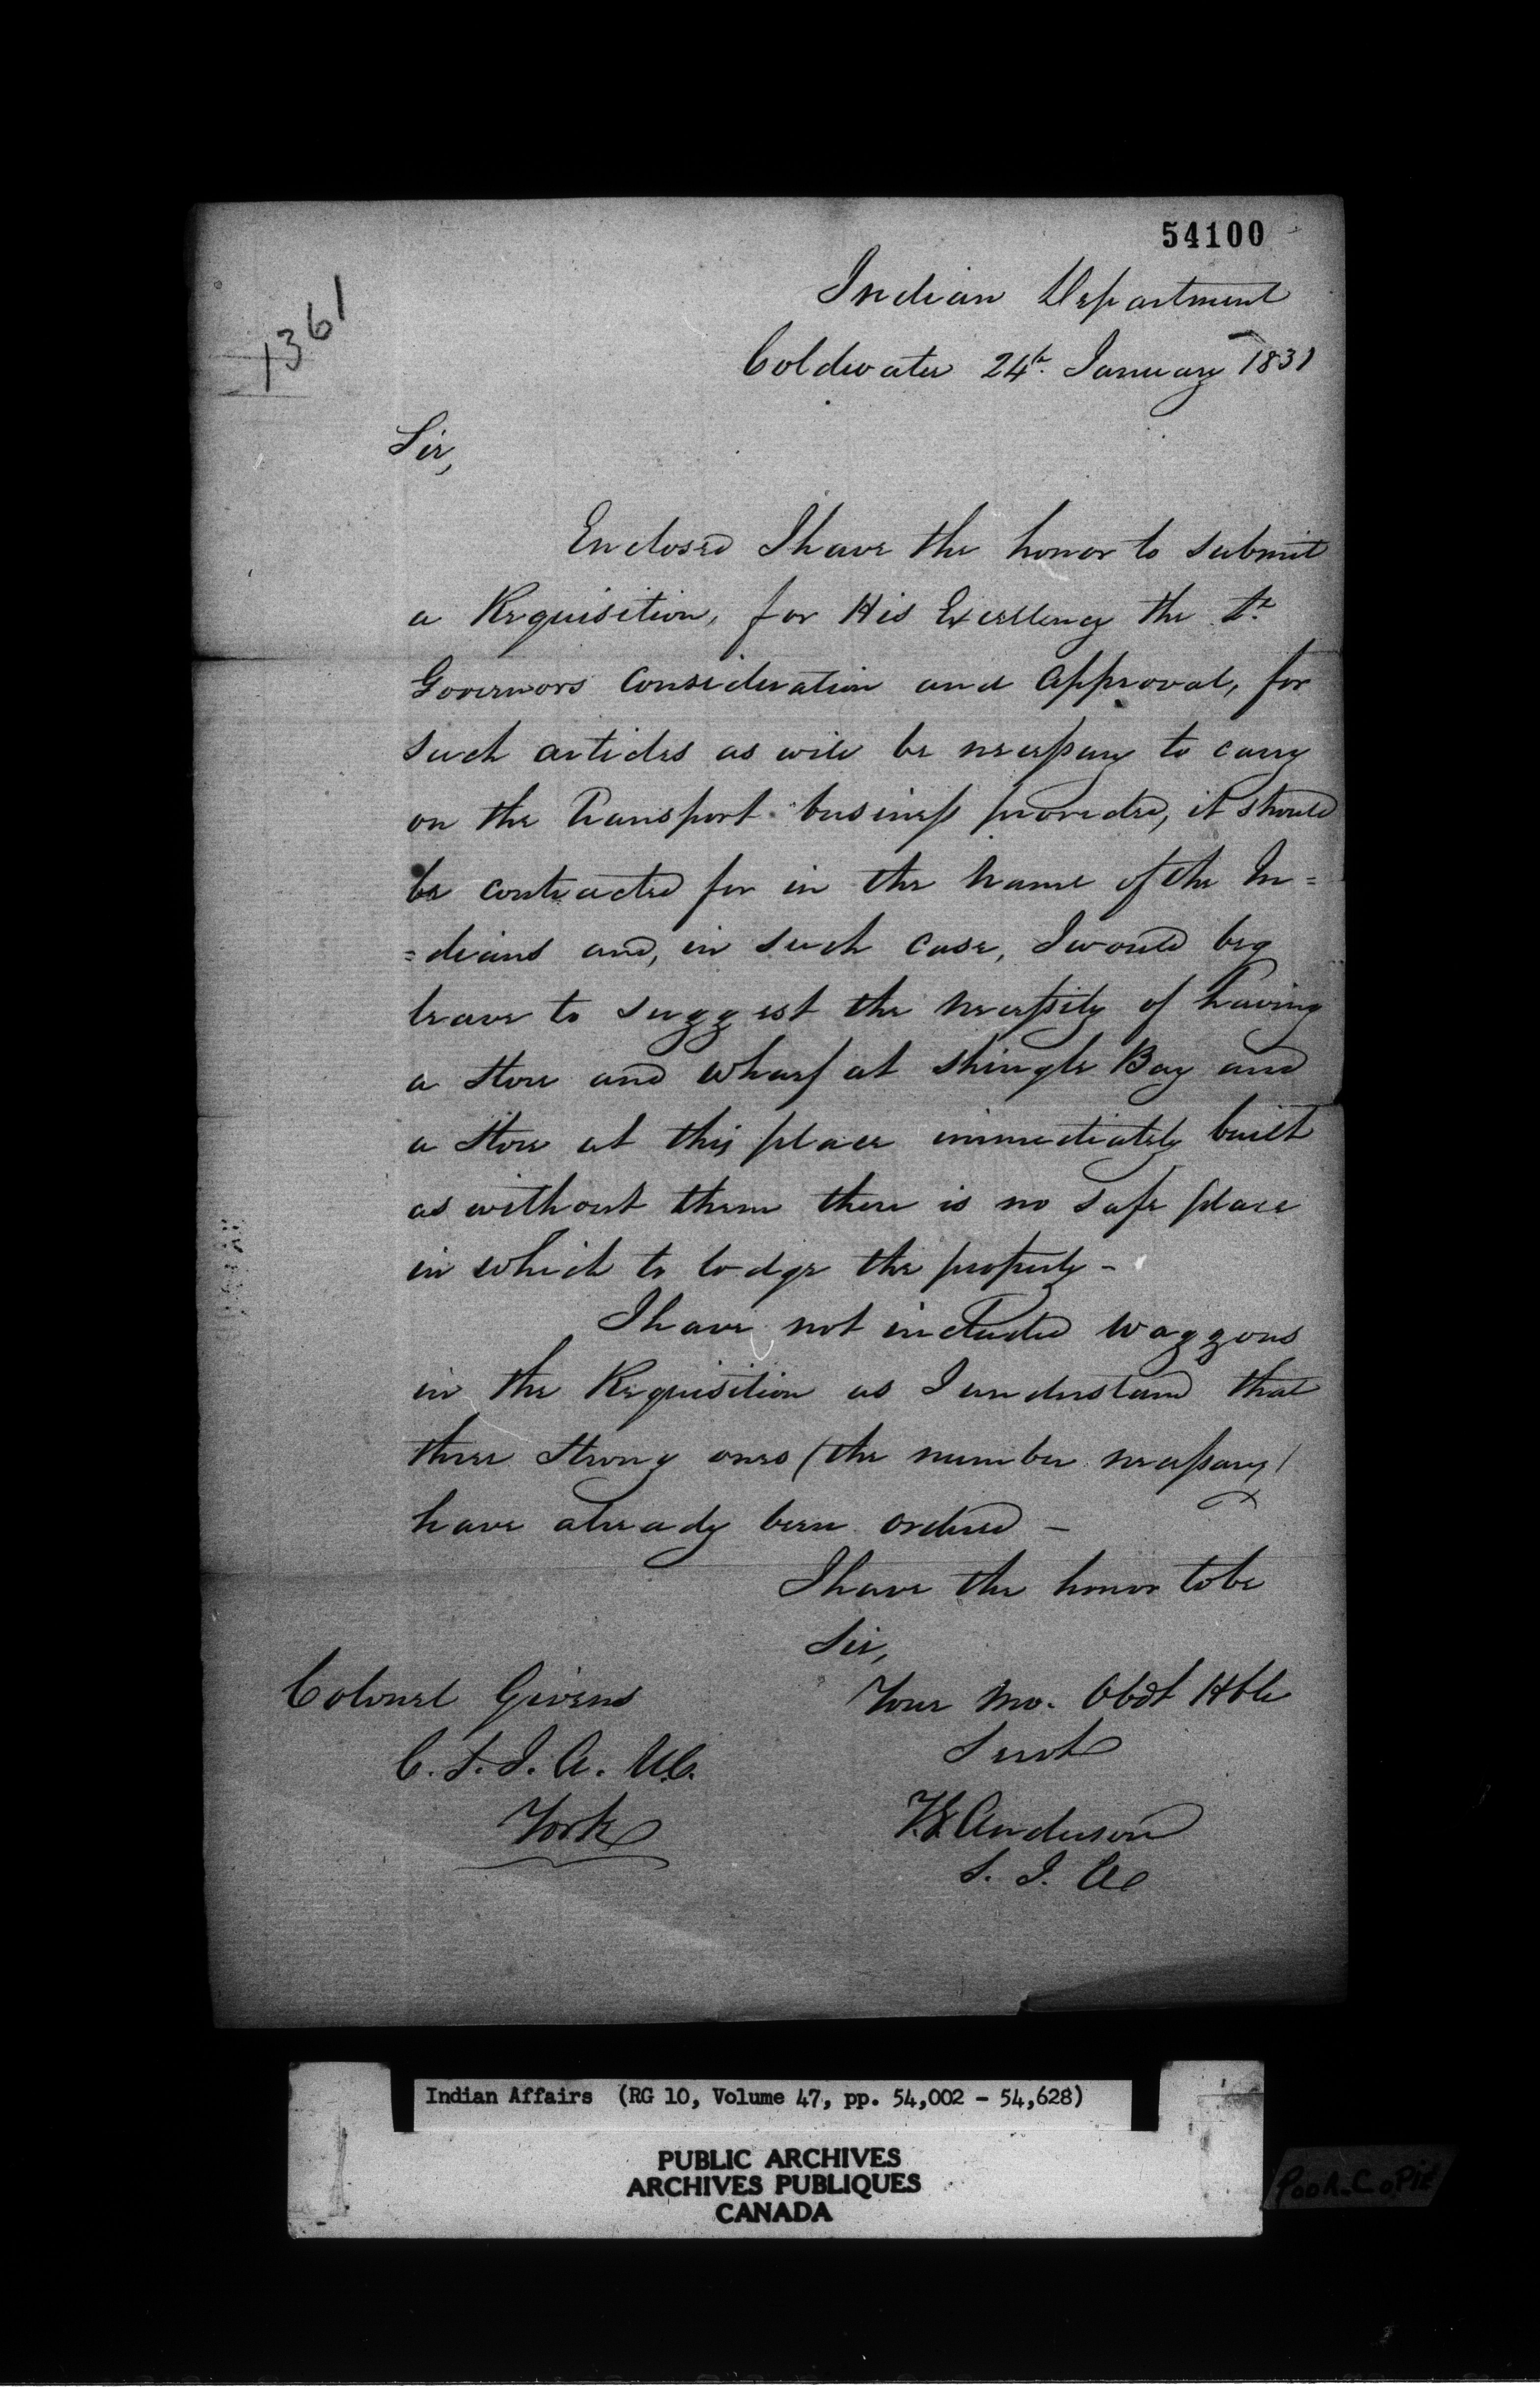 54100
1361
Indian Department
Coldwater 24th. January 1831
Sir,
Enclosed I have the honor to submit
a Requisition, for His Excellency the Lt.
Governors Consideration and Approval, for
such articles as will be necessary to carry
on the Transport business provided, it should
be contracted for in the Name of the In=
=dians and, in such case, I would beg
leave to suggest the necessity of having
a Store and Wharf at Shingle Bay and
a Store at this place immediately built
as without them there is no safe place
in which to lodge the property -
I have not included Waggons
in the Requisition as I understand that
three strong ones (the number necessary)
have already been ordered -
I have the honor to be
Sir,
Your Mo. Obdt Hble
Servt
T.G. Anderson
S. I. A
Colonel Givens
C. S. I. A. U.C.
York
Indian Affairs (RG 10, Volume 47, pp. 54,002 - 54,628)
PUBLIC ARCHIVES
ARCHIVES PUBLIQUES
CANADA
POOR COPIE